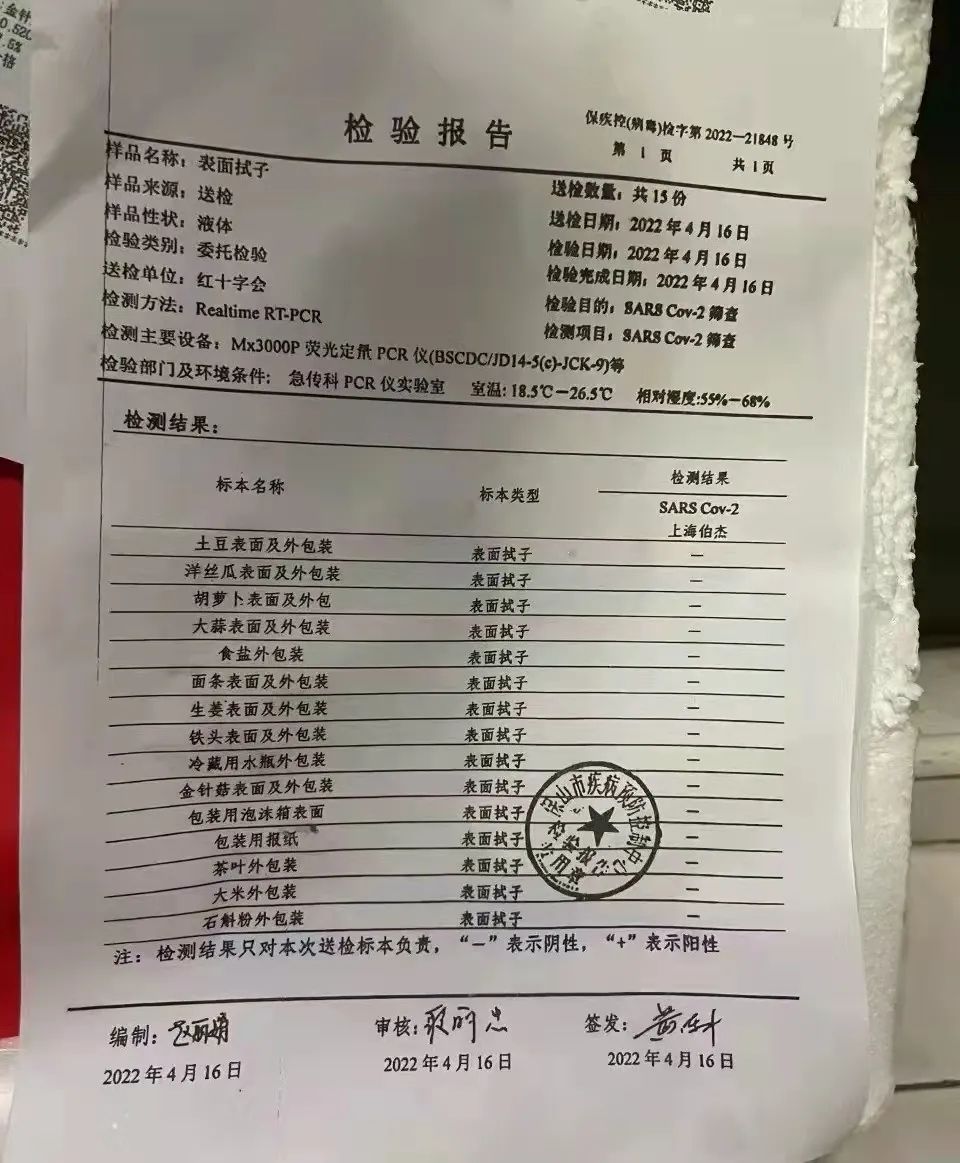 金针
0.520
.5%
格
保疾控(病毒)检字第 2022—21848 号
检验报告
第 1 页 共 1 页
样品名称：表面拭子
样品来源：送检 送检数量：共 15 份
样品性状：液体 送检日期：2022 年 4 月 16 日
检验类别：委托检验 检验日期：2022 年 4 月 16 日
送检单位：红十字会 检验完成日期：2022 年 4 月 16 日
检测方法：Realtime RT-PCR 检验目的：SARS Cov-2 筛查
检测项目：SARS Cov-2 筛查
检测主要设备：Mx3000P 荧光定量 PCR 仪(BSCDC/JD14-5(c)-JCK-9)等
检验部门及环境条件：急传科 PCR 仪实验室 室温: 18.5℃－26.5℃ 相对湿度:55%－68%
检测结果：
标本名称 标本类型 检测结果
SARS Cov-2
上海伯杰
土豆表面及外包装 表面拭子 －
洋丝瓜表面及外包装 表面拭子 －
胡萝卜表面及外包 表面拭子 －
大蒜表面及外包装 表面拭子 －
食盐外包装 表面拭子 －
面条表面及外包装 表面拭子 －
生姜表面及外包装 表面拭子 －
铁头表面及外包装 表面拭子 －
冷藏用水瓶外包装 表面拭子 －
金针菇表面及外包装 表面拭子 －
包装用泡沫箱表面 表面拭子 －
包装用报纸 表面拭子 －
茶叶外包装 表面拭子 －
大米外包装 表面拭子 －
石斛粉外包装 表面拭子 －
山市疾病预防控制中心
检验报告
专用章
注：检测结果只对本次送检标本负责，“－”表示阴性，“+”表示阳性
编制： 审核： 签发：
2022 年 4 月 16 日 2022 年 4 月 16 日 2022 年 4 月 16 日